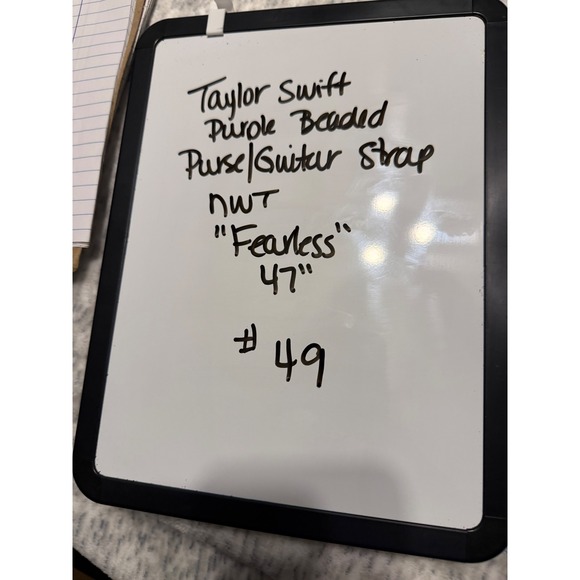 Taylor Swift
Purple Beaded
Purse/Guitar Strap
NWT
"Fearless"
47"
# 49